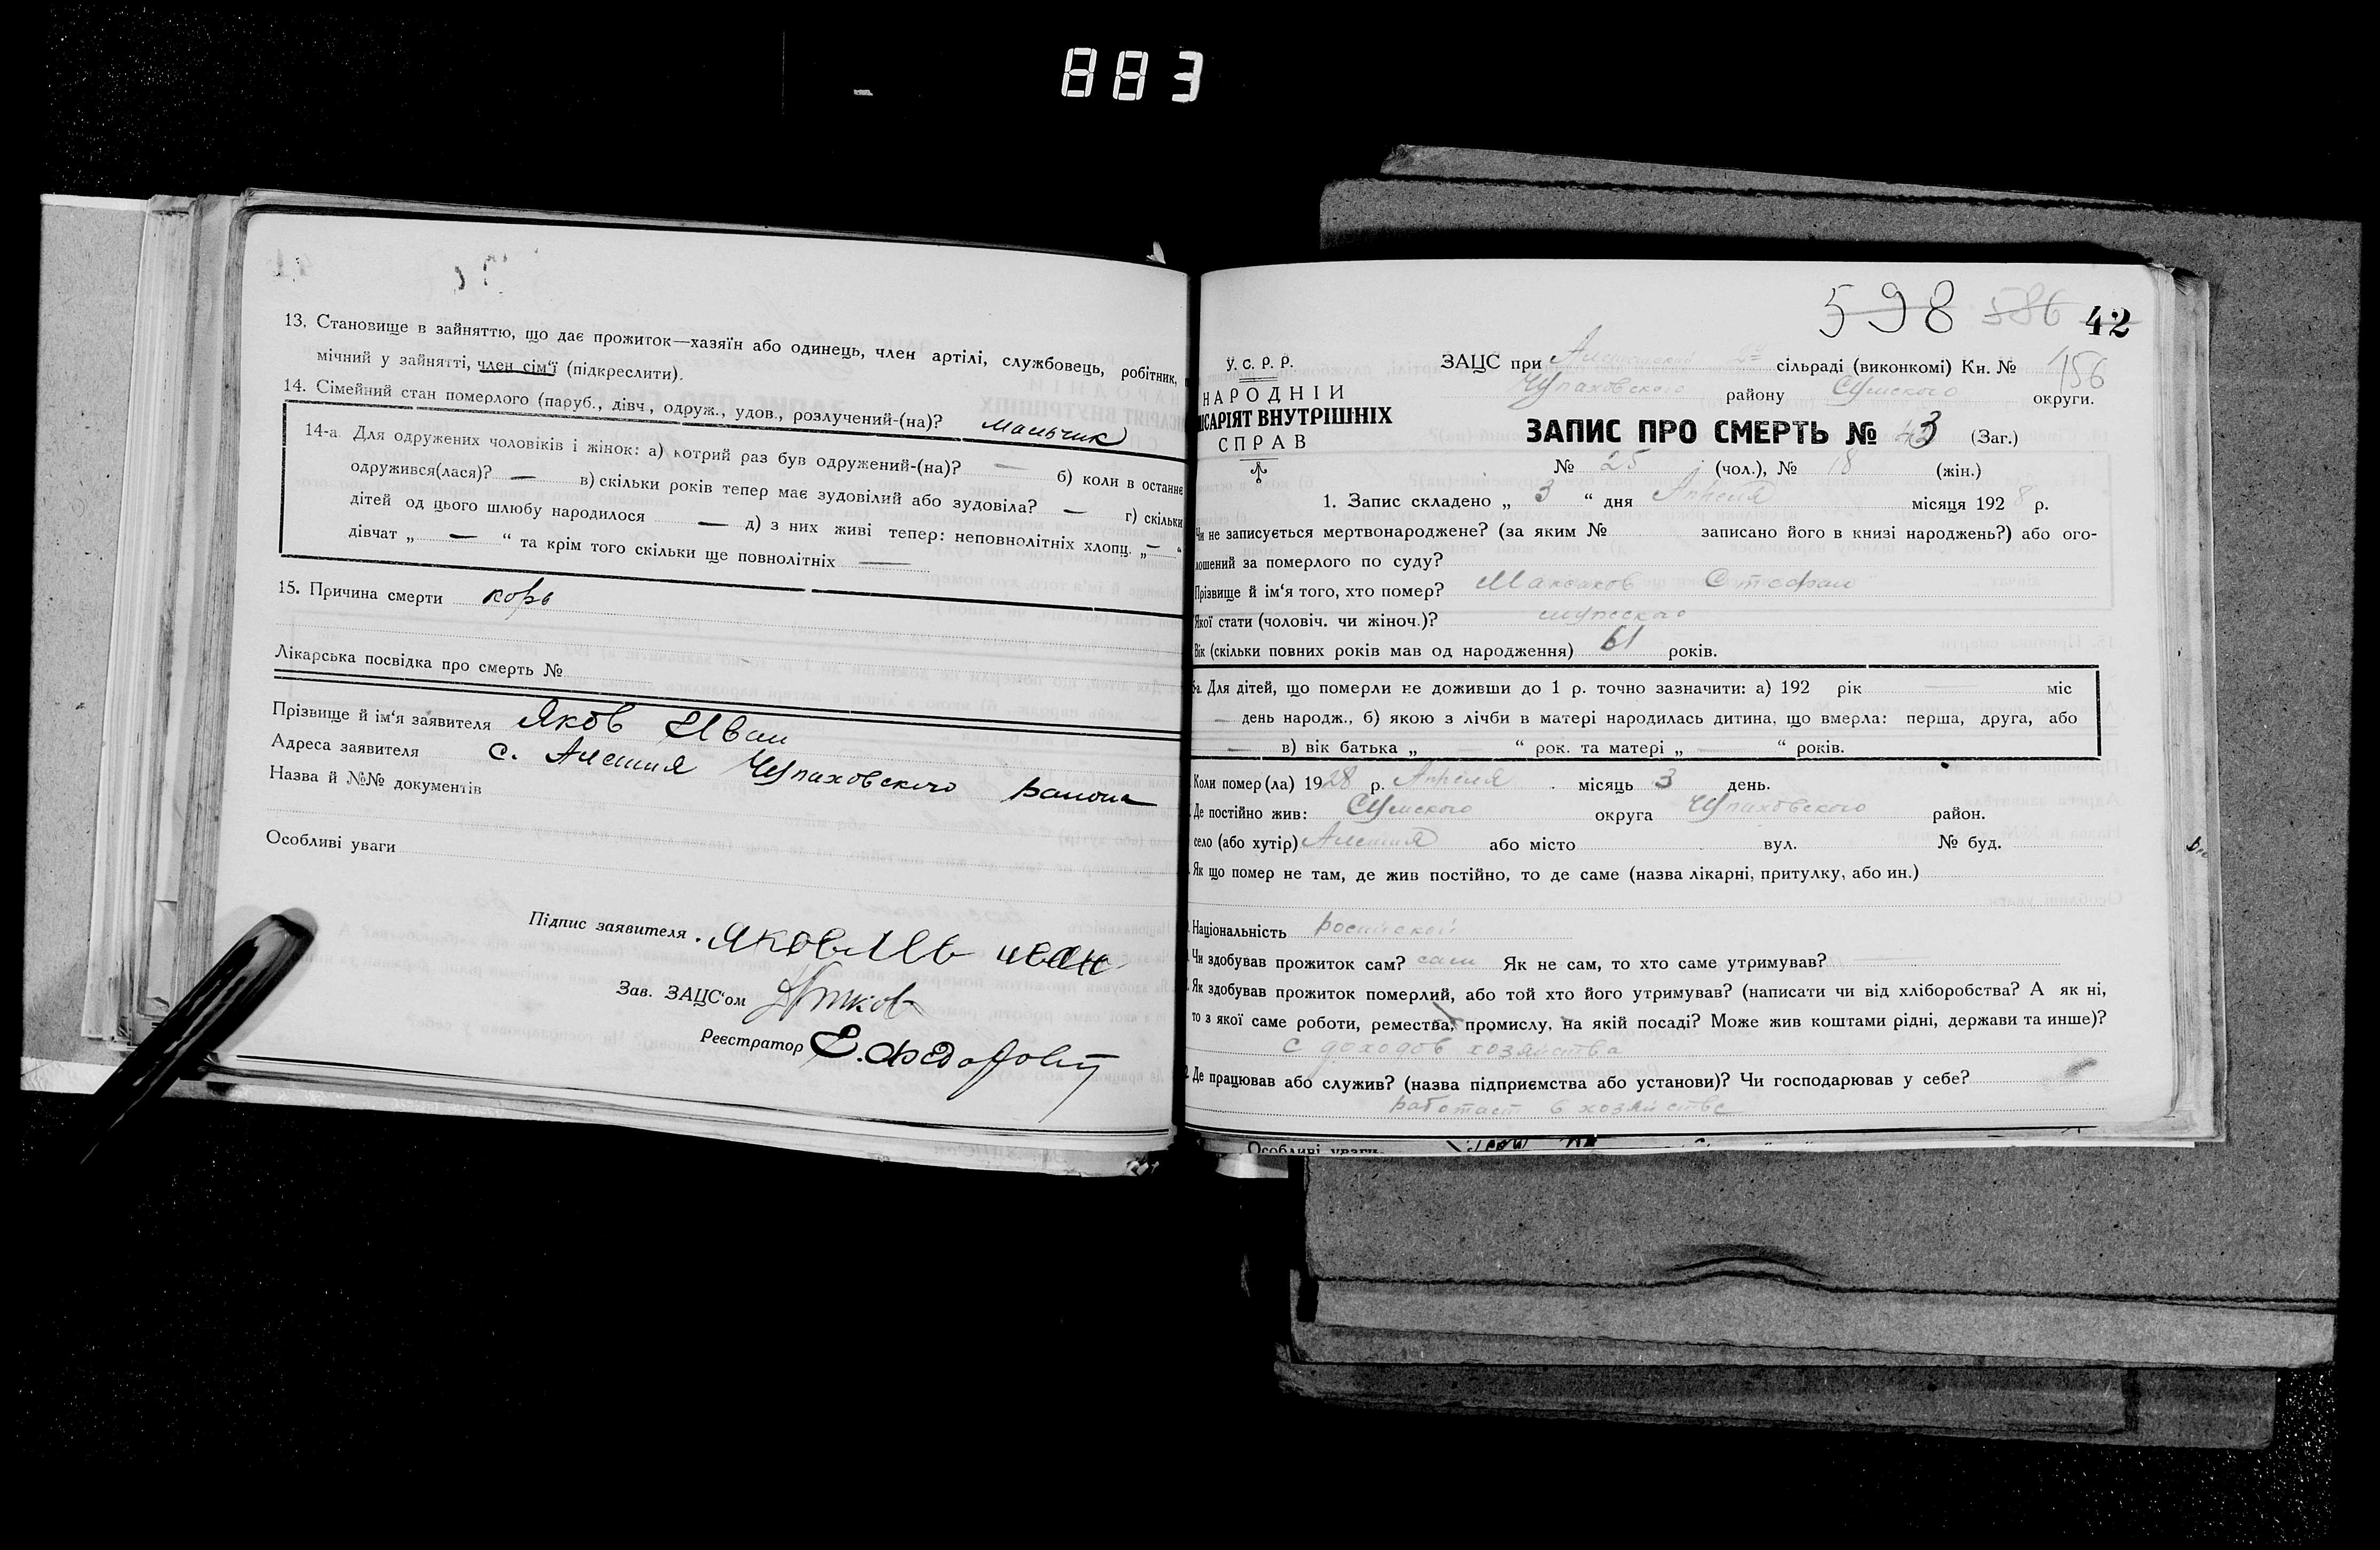 883
13. Становище в зайняттю, що дає прожиток—хазяїн або одинець, член артілі, службовець, робітник,
мічний у зайнятті, член сім'ї (підкреслити).
14. Сімейний стан померлого (паруб., дівч., одруж., удов., розлучений-(на)? мальчик
14-а Для одружених чоловіків і жінок: а) котрий раз був одружений-(на)? — б) коли в останнє
одружився(лася)? — в) скільки років тепер має зудовілий або зудовіла? — г) скільки
дітей од цього шлюбу народилося — д) з них живі тепер: неповнолітніх хлопц. „—“
дівчат „ — “ та крім того скільки ще повнолітніх —
15. Причина смерти корь
Лікарська посвідка про смерть №
Прізвище й ім'я заявителя Яков Иван
Адреса заявителя с. Алешня Чупаховского района
Назва й №№ документів
Особливі уваги
Підпис заявителя. Яковлев иван
Зав. ЗАЦС'ом
Реєстратор Е. Федорович
598 586 42
У. С. Р. Р.
НАРОДНІЙ
ІСАРІЯТ ВНУТРІШНІХ
СПРАВ
ЗАЦС при 2й сільраді (виконкомі) Кн. № 156
Чупаховского району Сумского округи.
ЗАПИС ПРО СМЕРТЬ № 43 (Заг.)
№ 25 (чол.), № 18 (жін.)
1. Запис складено „ 3 “ дня Апреля місяця 1928 р.
Чи не записується мертвонароджене? (за яким № записано його в книзі народжень?) або ого-
лошений за померлого по суду?
Прізвище й ім'я того, хто помер? Максаков Стефан
Якої стати (чоловіч. чи жіноч.)? мужского
Вік (скільки повних років мав од народження) 61 років.
5-а. Для дітей, що померли не доживши до 1 р. точно зазначити: а) 192 рік — міс
— день народж., б) якою з лічби в матері народилась дитина, що вмерла: перша, друга, або
— в) вік батька „ — “ рок. та матері „ — “ років.
Коли помер (ла) 1928 р. Апреля місяць 3 день.
Де постійно жив: Сумского округа Чупаховского район.
село (або хутір) Алешня або місто вул. № буд.
Як що помер не там, де жив постійно, то де саме (назва лікарні, притулку, або ин.)
Національність російской
Чи здобував прожиток сам? сам Як не сам, то хто саме утримував? —
Як здобував прожиток померлий, або той хто його утримував? (написати чи від хліборобства? А як ні,
то з якої саме роботи, ремества, промислу, на якій посаді? Може жив коштами рідні, держави та инше)?
с доходов хозяйства
Де працював або служив? (назва підприємства або установи)? Чи господарював у себе?
работает в хозяйстве
Особливі уваги